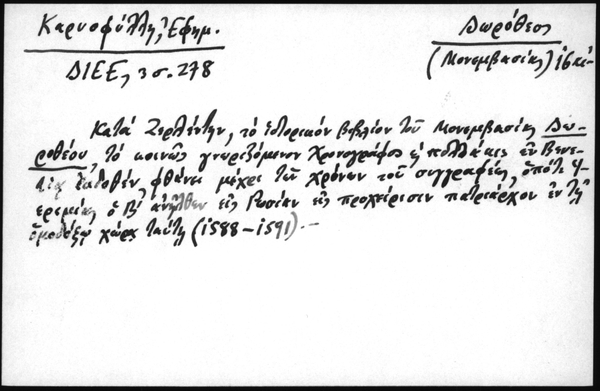 Καρυοφύλλη, Ἐφημ.
ΔΙΕΕ, 3 σ. 278
Δωρόθεος
(Μονεμβασίας) 16 αἰ.
Κατά Ζερλέντην, τό ἱστορικόν βιβλίον τοῦ Μονεμβασίας Δω-
ροθέου, τό κοινῶς γνωριζόμενον Χρονογράφος ἤ πολλάκις ἐν Βενε-
τίᾳ ἐκδοθέν, φθάνει μέχρι τῶν χρόνων τοῦ συγγραφέως, ὁπότε Ἱ-
ερεμίας ὁ Β' ἀνῆλθεν εἰς Ρωσίαν εἰς προχείρισιν πατριάρχου ἐν τῇ
ὁμοδόξῳ χώρᾳ ταύτῃ (1588-1591).-